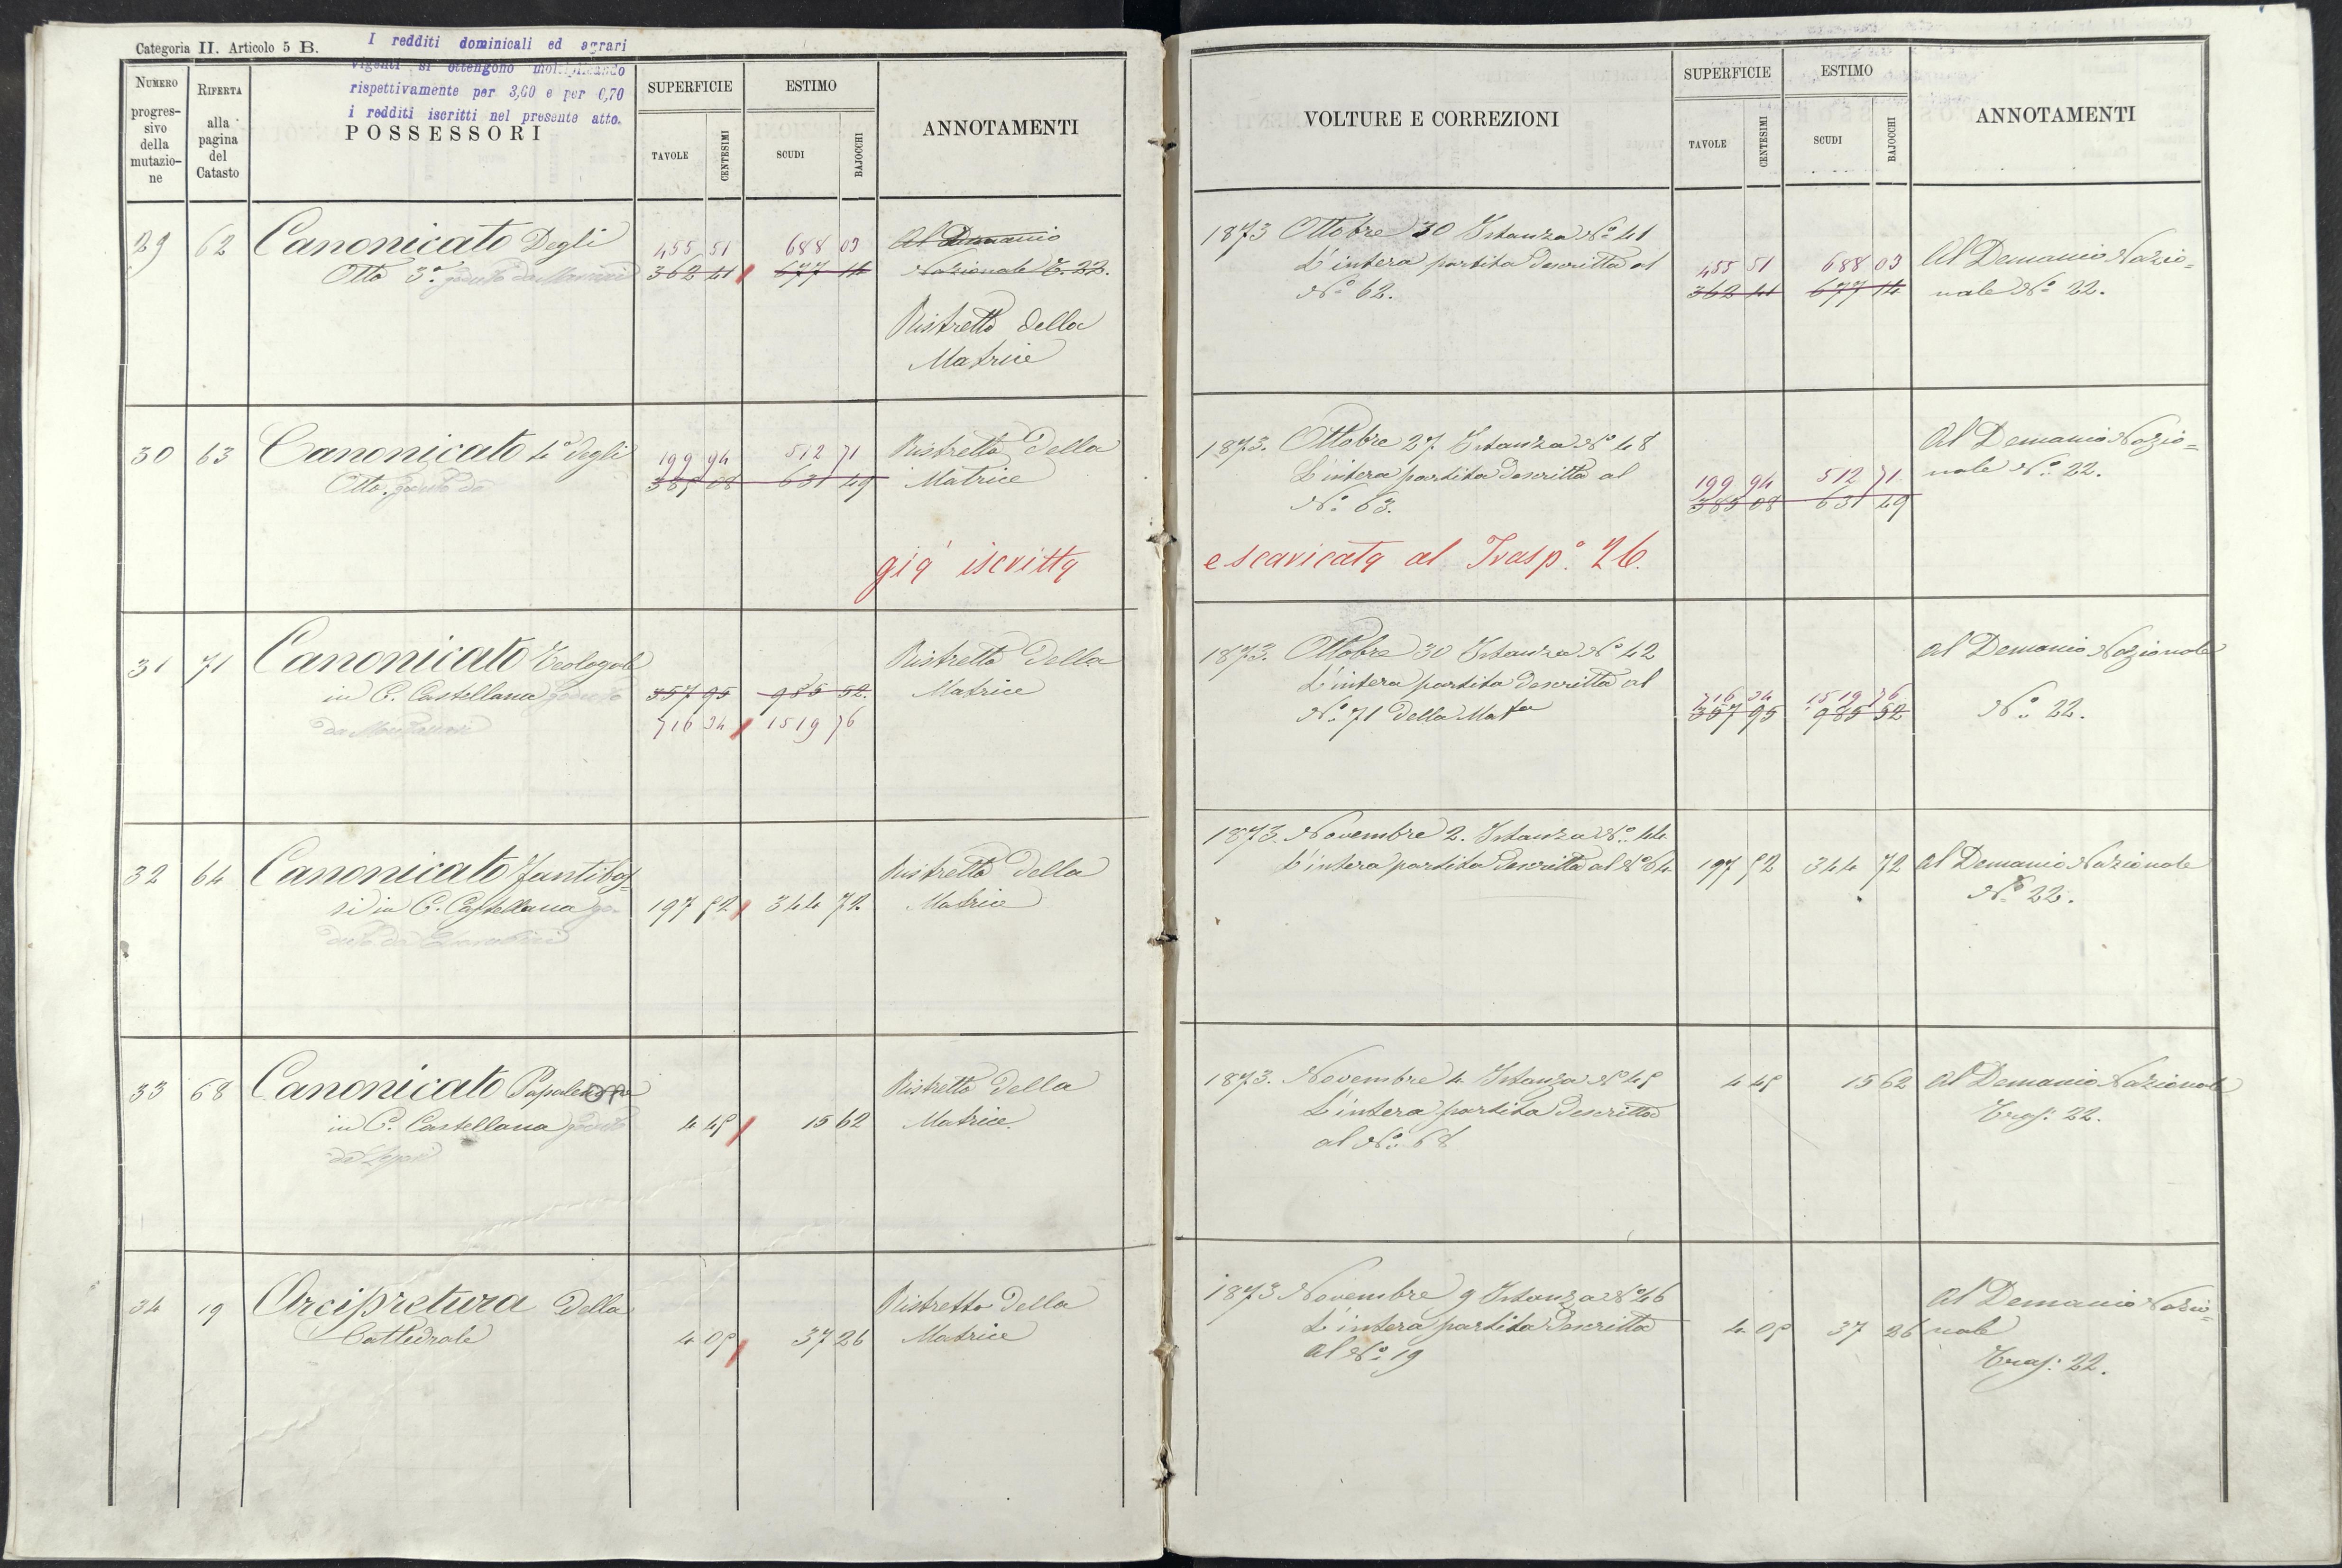 Categoria II. Articolo 5 B.
I redditi dominicali ed agrari
vigenti si ottengono moltiplicando
rispettivamente per 3,60 e per 0,70
i redditi iscritti nel presente atto.
NUMERO
progres-
sivo
della
mutazio-
ne
RIFERTA
alla
pagina
del
Catasto
POSSESSORI
SUPERFICIE
TAVOLE
CENTESIMI
ESTIMO
SCUDI
BAJOCCHI
ANNOTAMENTI
29 62 Canonicato Degli
Otto 3° goduto da
455 51 688 03
362 41 677 14
Al Demanio
Nazionale T. 22.
Ristretto della
Matrice
30 63 Canonicato 4° degli
Otto. goduto da
199 94 512 71
385 08 631 49
Ristretto della
Matrice
già iscritta
31 71 Canonicato Teologale
in C. Castellana goduto
da
357 95 985 52
716 34 1519 76
Ristretto della
Matrice
32 64 Canonicato
si in C. Castellana go-
duto da
197 52 344 72
Ristretto della
Matrice
33 68 Canonicato
in C. Castellana goduto
da
4 45 15 62
Ristretto della
Matrice.
34 19 Arcipretura della
Cattedrale
4 05 37 26
Ristretto della
Matrice
VOLTURE E CORREZIONI
SUPERFICIE
TAVOLE
CENTESIMI
ESTIMO
SCUDI
BAJOCCHI
ANNOTAMENTI
1873 Ottobre 30 Istanza N° 41
L'intera partita descritta al
N° 62.
455 51 688 03
362 41 677 14
Al Demanio Nazio=
nale N° 22.
1873. Ottobre 27 Istanza N° 48
L'intera partita descritta al
N° 63.
199 94 512 71
385 08 631 49
Al Demanio Nazio=
nale N° 22.
e scaricata al Trasp.° 26.
1873. Ottobre 30 Istanza N° 42
L'intera partita descritta al
N° 71 della Mat
716 34 1519 76
357 95 985 52
Al Demanio Nazionale
N° 22.
1873. Novembre 2. Istanza N° 44
L'intera partita descritta al N° 64.
197 52 344 72
Al Demanio Nazionale
N° 22.
1873. Novembre 4. Istanza N° 45
L'intera partita descritta
al N° 68
4 45 15 62
Al Demanio Nazionale
Trasp: 22.
1873 Novembre 9 Istanza N° 46
L'intera partita descritta
al N° 19
4 05 37 26
Al Demanio Nazio=
nale
Trasp: 22.